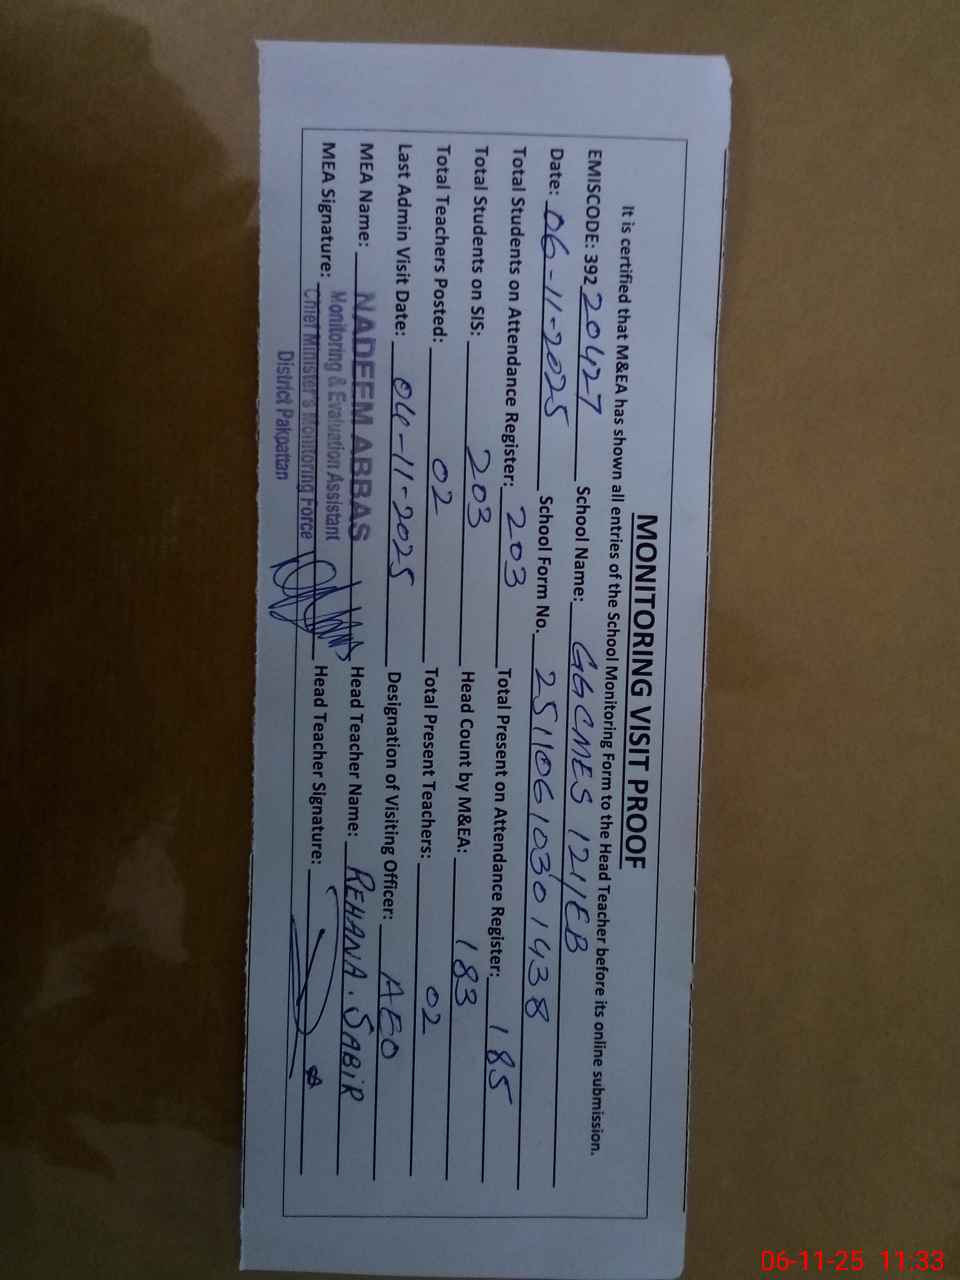 MONITORING VISIT PROOF
It is certified that M&EA has shown all entries of the School Monitoring Form to the Head Teacher before its online submission.
EMISCODE: 392 20427 School Name: GGCMES 121/EB
Date: 06-11-2025 School Form No. 25110610301438
Total Students on Attendance Register: 203 Total Present on Attendance Register: 185
Total Students on SIS: 203 Head Count by M&EA: 183
Total Teachers Posted: 02 Total Present Teachers: 02
Last Admin Visit Date: 04-11-2025 Designation of Visiting Officer: AEO
MEA Name: NADEEM ABBAS Head Teacher Name: REHANA. SABIR
Monitoring & Evaluation Assistant
MEA Signature: Chief Minister's Monitoring Force Head Teacher Signature:
District Pakpattan
06-11-25 11:33